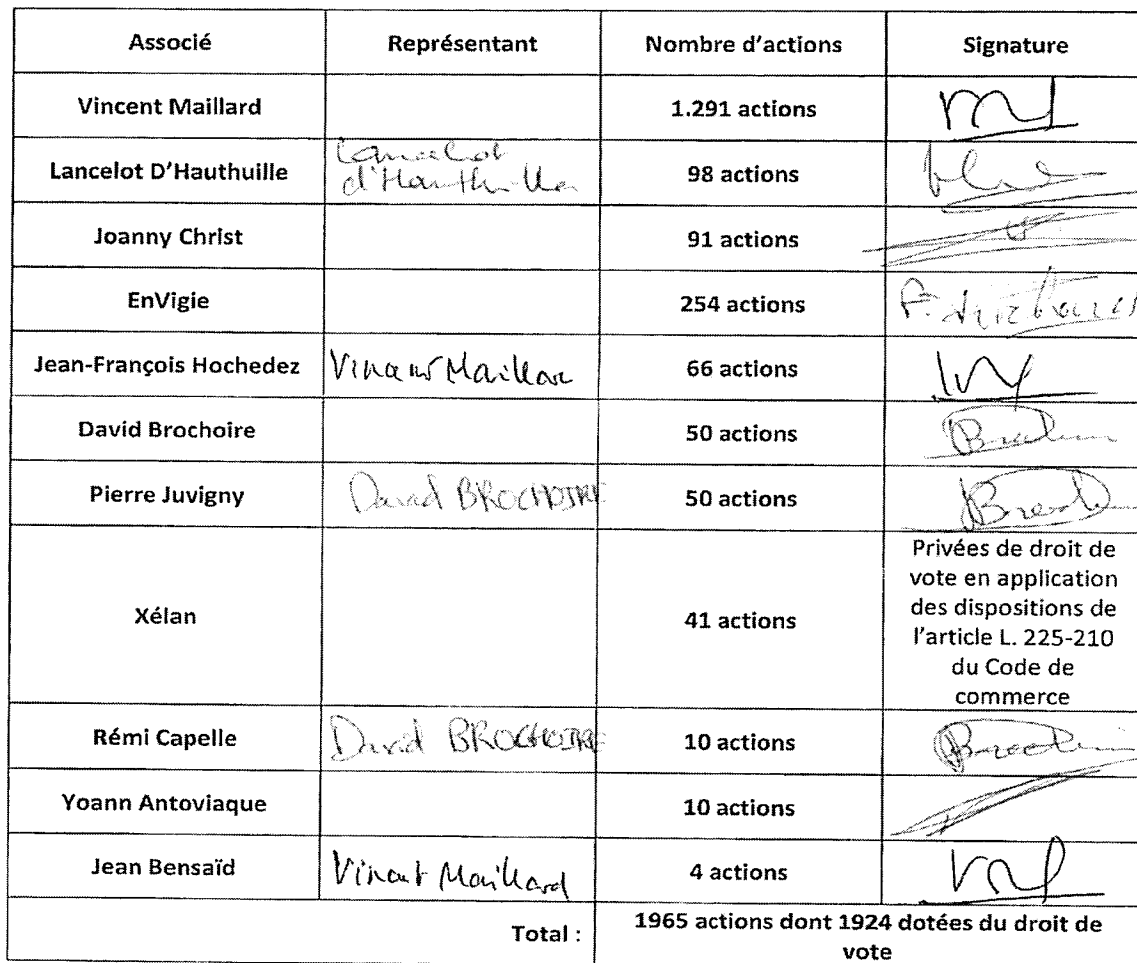 Associé Représentant Nombre d'actions Signature
Vincent Maillard 1.291 actions
Lancelot D'Hauthuille Lancelot d'Hauthuille 98 actions
Joanny Christ 91 actions
EnVigie 254 actions
Jean-François Hochedez Vincent Maillard 66 actions
David Brochoire 50 actions
Pierre Juvigny David BROCHOIRE 50 actions
Xélan 41 actions
Privées de droit de
vote en application
des dispositions de
l'article L. 225-210
du Code de
commerce
Rémi Capelle David BROCHOIRE 10 actions
Yoann Antoviaque 10 actions
Jean Bensaïd Vincent Maillard 4 actions
Total : 1965 actions dont 1924 dotées du droit de
vote